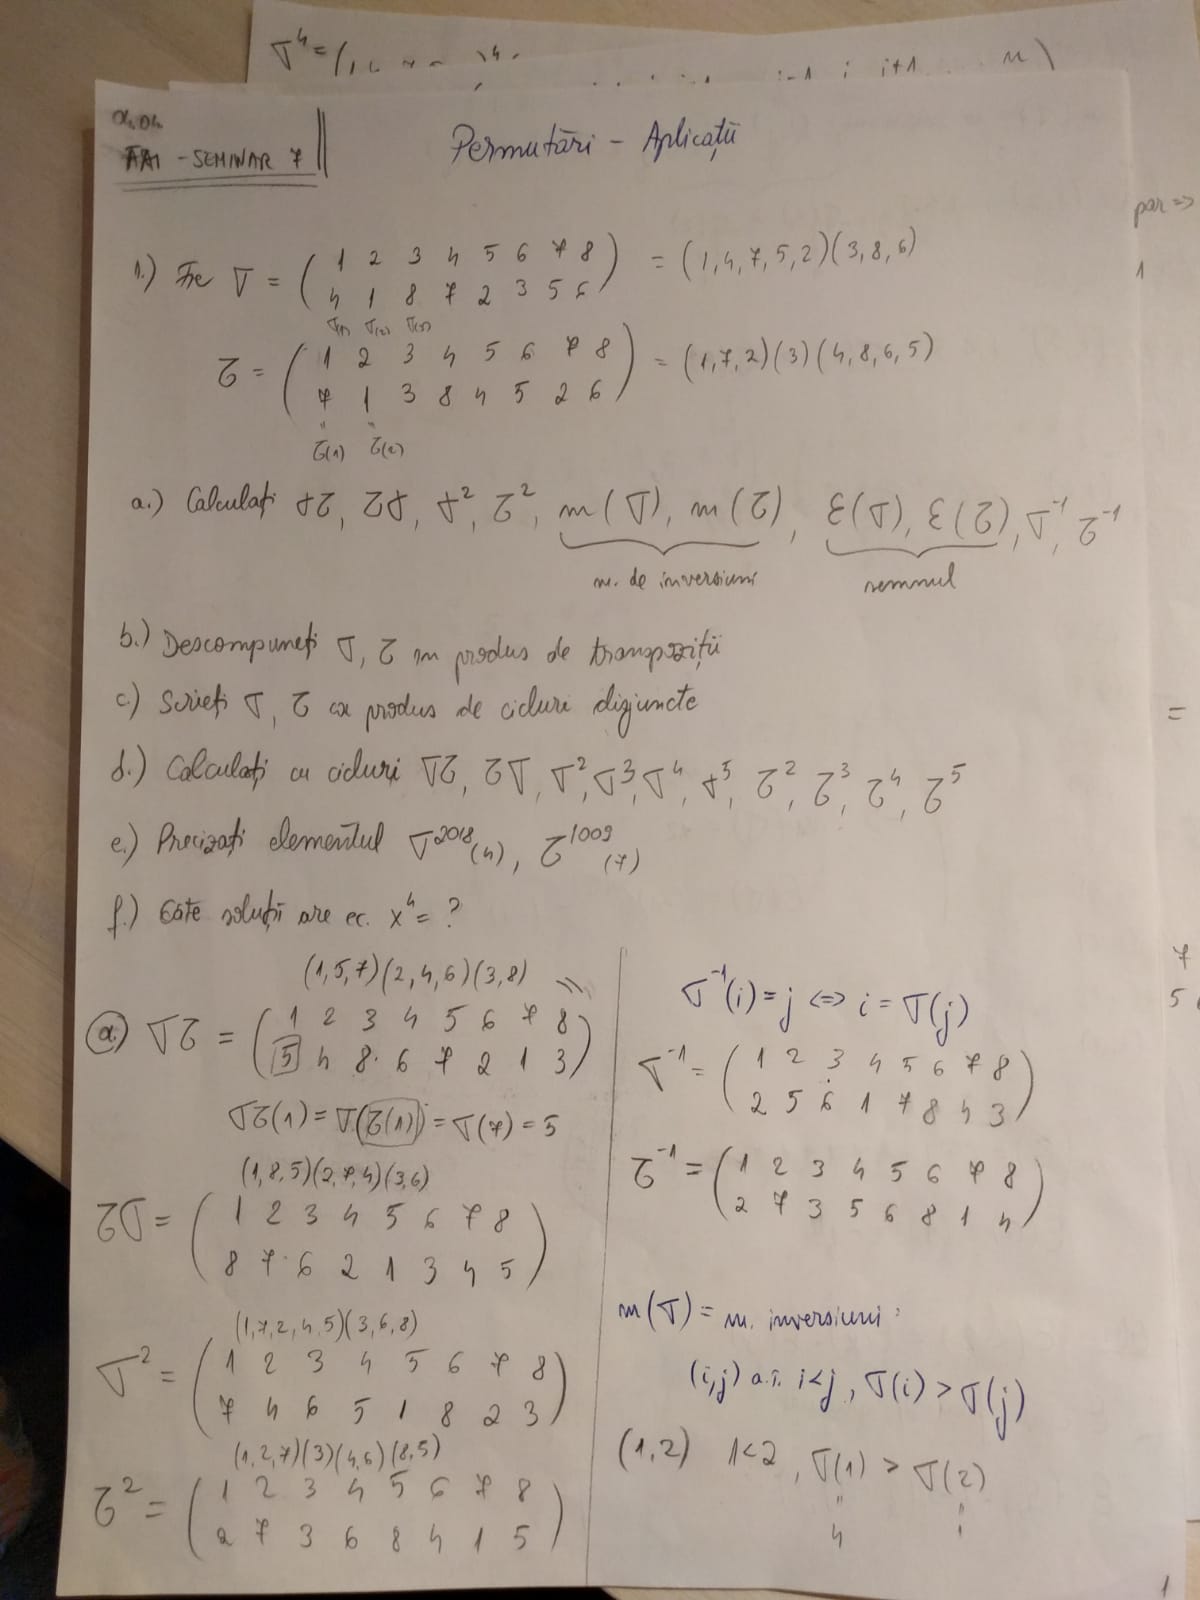 σ⁴ =
i-1 i i+1 n )
04.04.
SEMINAR 7
Permutări - Aplicații
par =>
1.) Fie σ = ( 1 2 3 4 5 6 7 8 ) = (1,4,7,5,2)(3,8,6)
4 1 8 7 2 3 5 6
σ(1) σ(2) σ(3)
τ = ( 1 2 3 4 5 6 7 8 ) = (1,7,2)(3)(4,8,6,5)
7 1 3 8 4 5 2 6
τ(1) τ(2)
a.) Calculați στ, τσ, σ², τ², m(σ), m(τ), ε(σ), ε(τ), σ⁻¹, τ⁻¹
nr. de inversiuni semnul
b.) Descompuneți σ, τ în produs de transpoziții
c.) Scrieți σ, τ ca produs de cicluri disjuncte
d.) Calculați cu cicluri στ, τσ, σ², σ³, σ⁴, σ⁵, τ², τ³, τ⁴, τ⁵
e.) Precizați elementul σ²⁰¹⁸(4), τ¹⁰⁰⁹(7)
f.) Câte soluții are ec. x⁴ = ?
(1,5,7)(2,4,6)(3,8)
a.) στ = ( 1 2 3 4 5 6 7 8 )
5 4 8 6 7 2 1 3
στ(1) = σ(τ(1)) = σ(7) = 5
(1,8,5)(2,7,4)(3,6)
τσ = ( 1 2 3 4 5 6 7 8 )
8 7 6 2 1 3 4 5
(1,7,2,4,5)(3,6,8)
σ² = ( 1 2 3 4 5 6 7 8 )
7 4 6 5 1 8 2 3
(1,2,7)(3)(4,6)(8,5)
τ² = ( 1 2 3 4 5 6 7 8 )
2 7 3 6 8 4 1 5
σ⁻¹(i) = j <=> i = σ(j)
σ⁻¹ = ( 1 2 3 4 5 6 7 8 )
2 5 6 1 7 8 4 3
τ⁻¹ = ( 1 2 3 4 5 6 7 8 )
2 7 3 5 6 8 1 4
m(σ) = nr. inversiuni:
(i,j) a.î. i<j, σ(i) > σ(j)
(1,2) 1<2, σ(1) > σ(2)
4 1
1